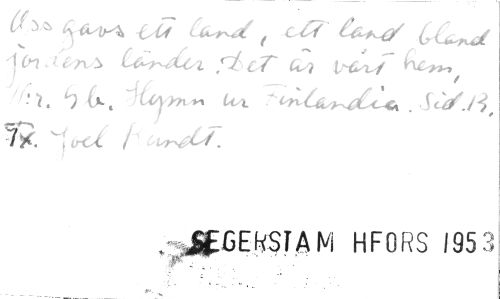 Oss gavs ett land, ett land bland
jordens länder. Det är vårt hem,
Nr. 9b. Hymn ur Finlandia. Sid. 12.
Tx. Joel Rundt.
SEGERSTAM HFORS 1953